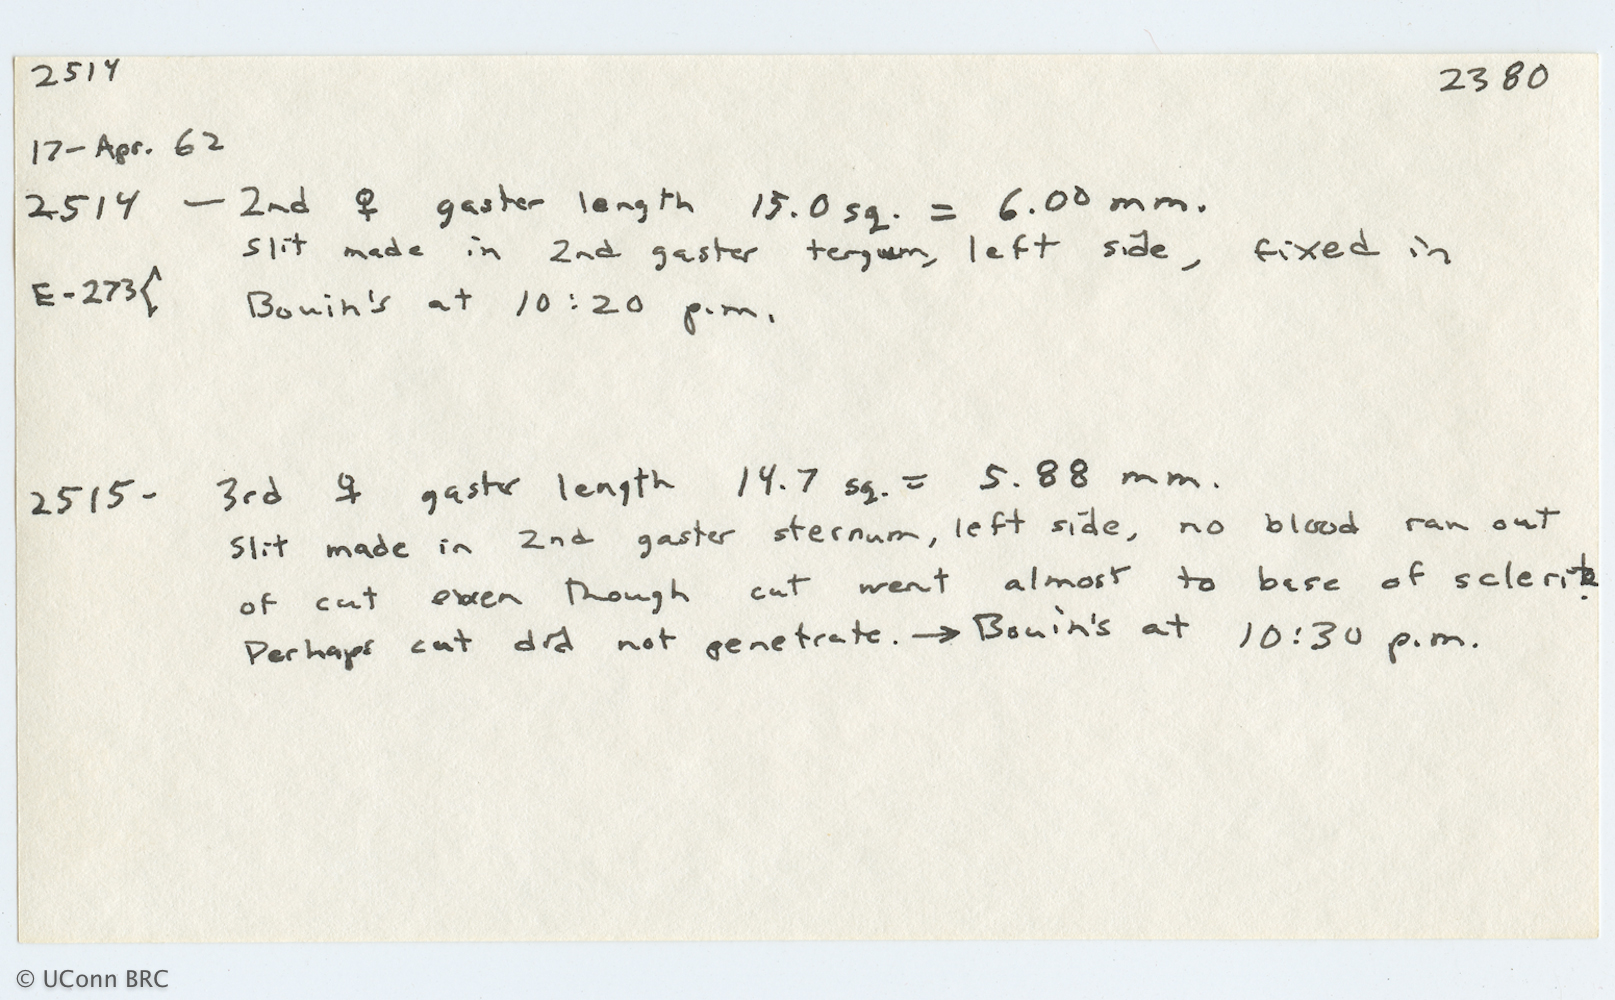 2514 2380
17-Apr. 62
2514 — 2nd ♀ gaster length 15.0 sq. = 6.00 mm.
Slit made in 2nd gaster tergum, left side, fixed in
E-273{ Bouin's at 10:20 p.m.
2515- 3rd ♀ gaster length 14.7 sq. = 5.88 mm.
Slit made in 2nd gaster sternum, left side, no blood ran out
of cut even though cut went almost to base of sclerite.
Perhaps cut did not penetrate. → Bouin's at 10:30 p.m.
© UConn BRC